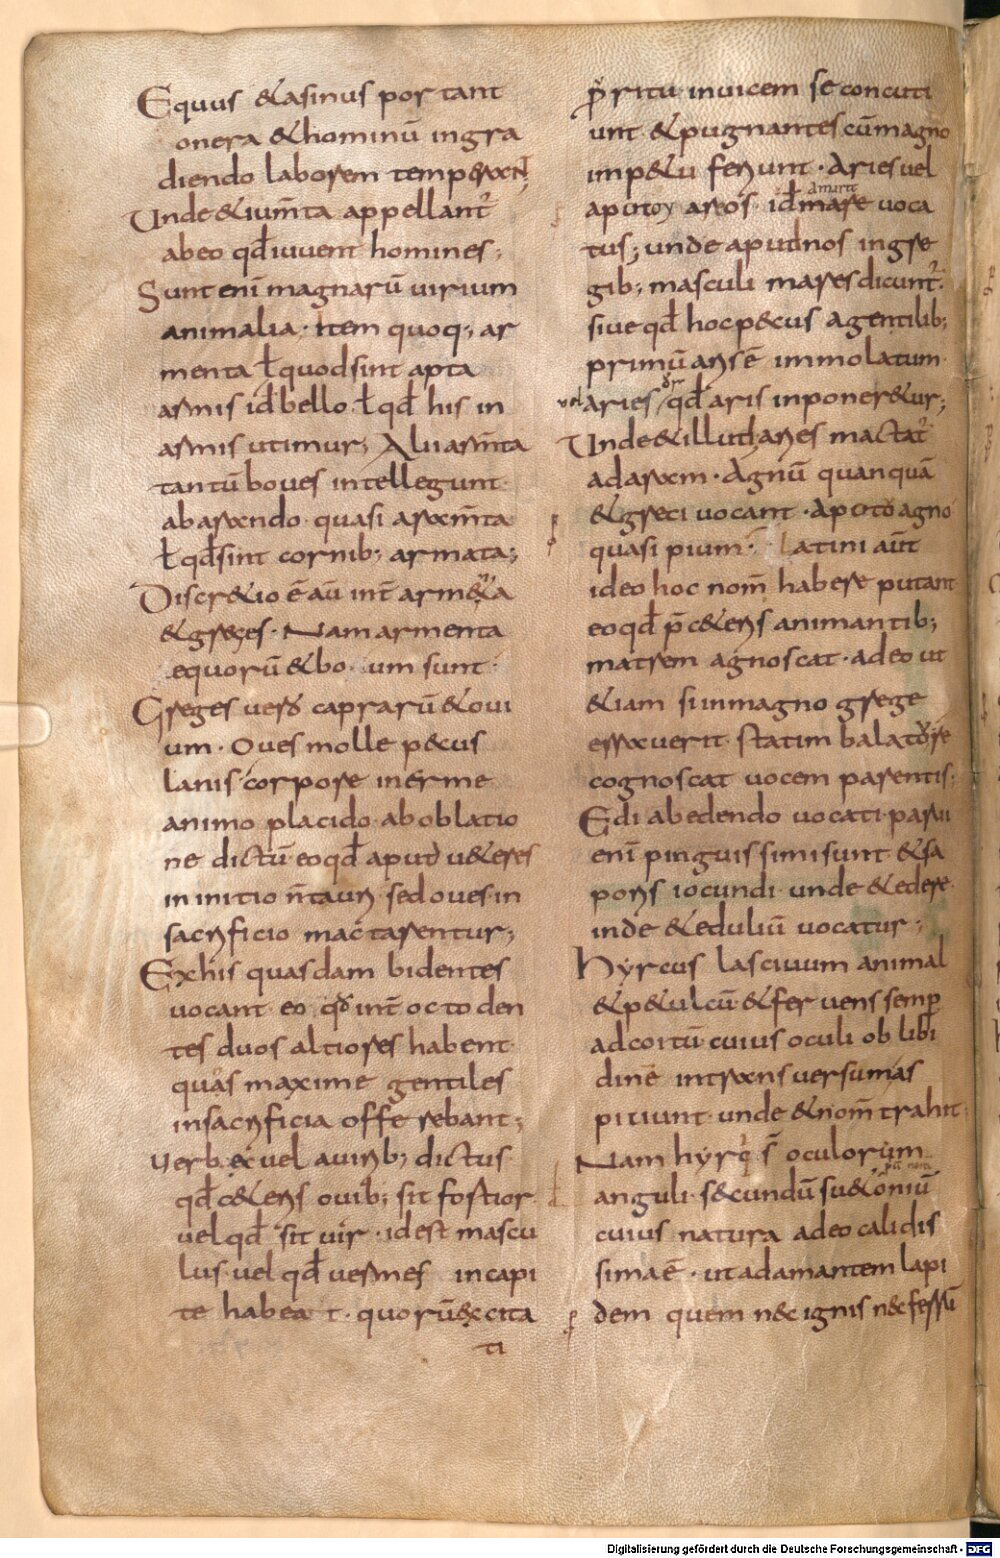 Equus & asinus portant
onera & hominū ingra
diendo laborem temperant
Unde & ium̄ta appellant̄
ab eo qđ iuuent homines;
Sunt enī magnarū uirium
animalia· Item quoq; ar
menta ł quod sint apta
armis id bello· ł qđ his in
armis utimur; Alii arm̄ta
tantū boues intellegunt
ab arando quasi aram̄ta
ł qđ sint cornib; armata;
Discr&io ē aū int̄ arm&a
& greges· Nam armenta
equorū & bo um sunt·
Greges uero caprarū & oui
um· Oues molle pecus
lanis corpore inerme
animo placido ab oblatio
ne dictū eo qđ aput u&eres
in initio n̄ tauri sed oues in
sacrificio mactarentur;
Ex his quasdam bidentes
uocant eo qđ int̄ octo den
tes duos altiores habent
quas maxime gentiles
in sacrificia offerebant;
Uerbex uel a uirib; dictus
qđ c&eris ouib; sit fortior
uel qđ sit uir· id est mascu
lus· uel qđ uermes in capi
te habeat· quorū excita
ti
p̄ritu inuicem se concuti
unt & pugnantes cū magno
imp&u feriunt· Aries uel
apo toy areos· id mare uoca
a marte
tus; unde aput nos in gre
gib; masculi mares dicunt̄
siue qđ hoc pecus a gentilib;
primū aris ē immolatum
uel aries qđ aris inponer&ur;
Unde & illud aries mactat̄
ad aram· Agnū quanquā
& greci uocant· Apo to agno
quasi pium· Latini aūt
ideo hoc nom̄ habere putant
eo qđ p̄ c&eris animantib;
matrem agnoscat· adeo ut
&iam si in magno grege
errauerit· statim balatore
cognoscat uocem parentis;
Edi ab edendo uocati parui
enī pinguissimi sunt & sa
poris iocundi· unde & edere
inde & eduliū uocatur;
Hyrcus lasciuum animal
& p&ulcū & feruens semp̄
ad coitū cuius oculi ob libi
dinē in transuersum as
piciunt· unde & nom̄ trahit;
Nam hyrq s̄ oculorum
anguli· secundū su&oniū
cuius natura adeo calidis
sima ē· ut adamantem lapi
dem quem nec ignis nec ferri
Digitalisierung gefördert durch die Deutsche Forschungsgemeinschaft - DFG